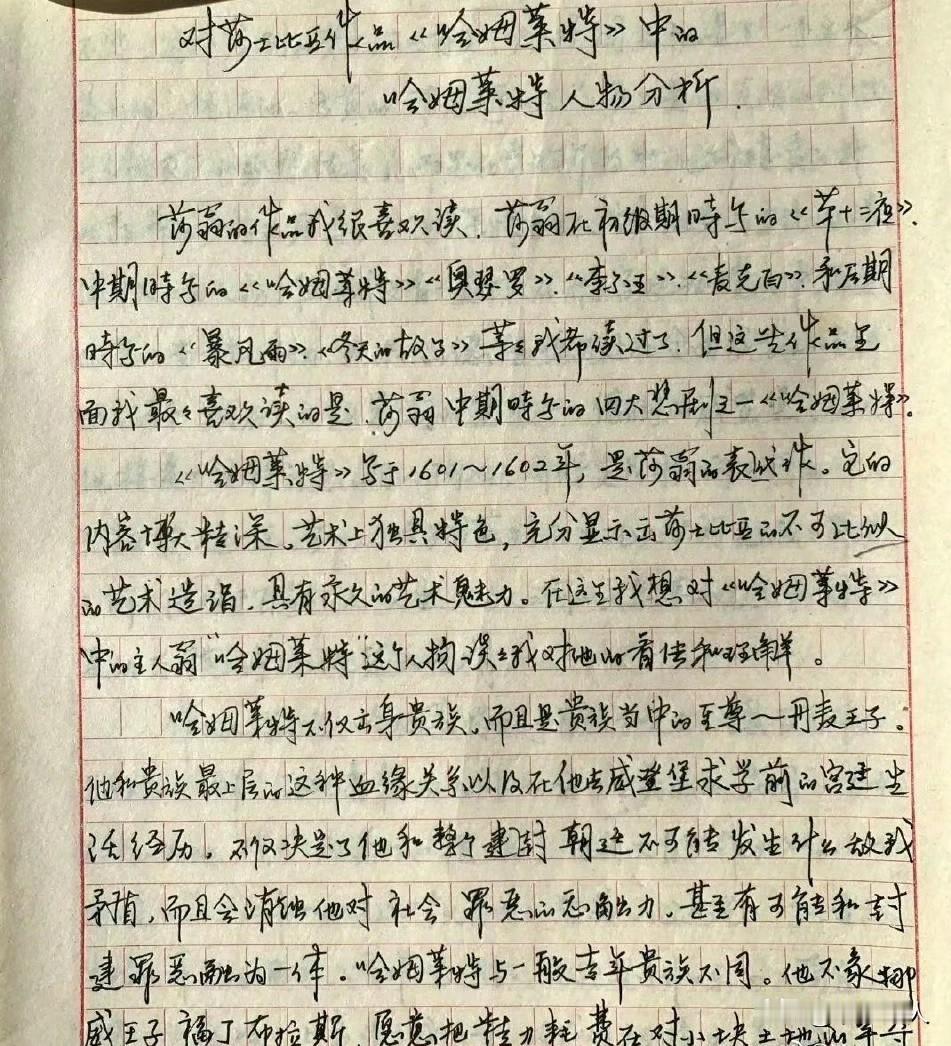 对莎士比亚作品《哈姆莱特》中的
哈姆莱特人物分析.
莎翁的作品我很喜欢读.莎翁在初级期时写的《第十二夜》.
中期时写的《哈姆莱特》《奥瑟罗》.《李尔王》.《麦克白》.和后期
时写的《暴风雨》.《冬天的故事》等々我都读过了.但这些作品里
面我最々喜欢读的是.莎翁中期时写的四大悲剧之一《哈姆莱特》.
《哈姆莱特》写于1601~1602年,是莎翁的表代作。它的
内容博大精深。艺术上独具特色,充分显示出莎士比亚的不可比拟
的艺术造诣.具有永久的艺术魅力。在这里我想对《哈姆莱特》
中的主人翁"哈姆莱特"这个人物谈谈我对他的看法和理解。
哈姆莱特不仅出身贵族.而且是贵族当中的至尊—丹麦王子。
他和贵族最上层的这种血缘关系以及在他去威登堡求学前的宫廷生
活经历.不仅决定了他和整个建封朝廷不可能发生什么敌我
矛盾,而且会消蚀他对社会罪恶的忍耐力.甚至有可能和封
建罪恶融为一体。哈姆莱特与一般青年贵族不同。他不象挪
威王子福丁布拉斯.愿意把精力耗费在对小块土地的争夺